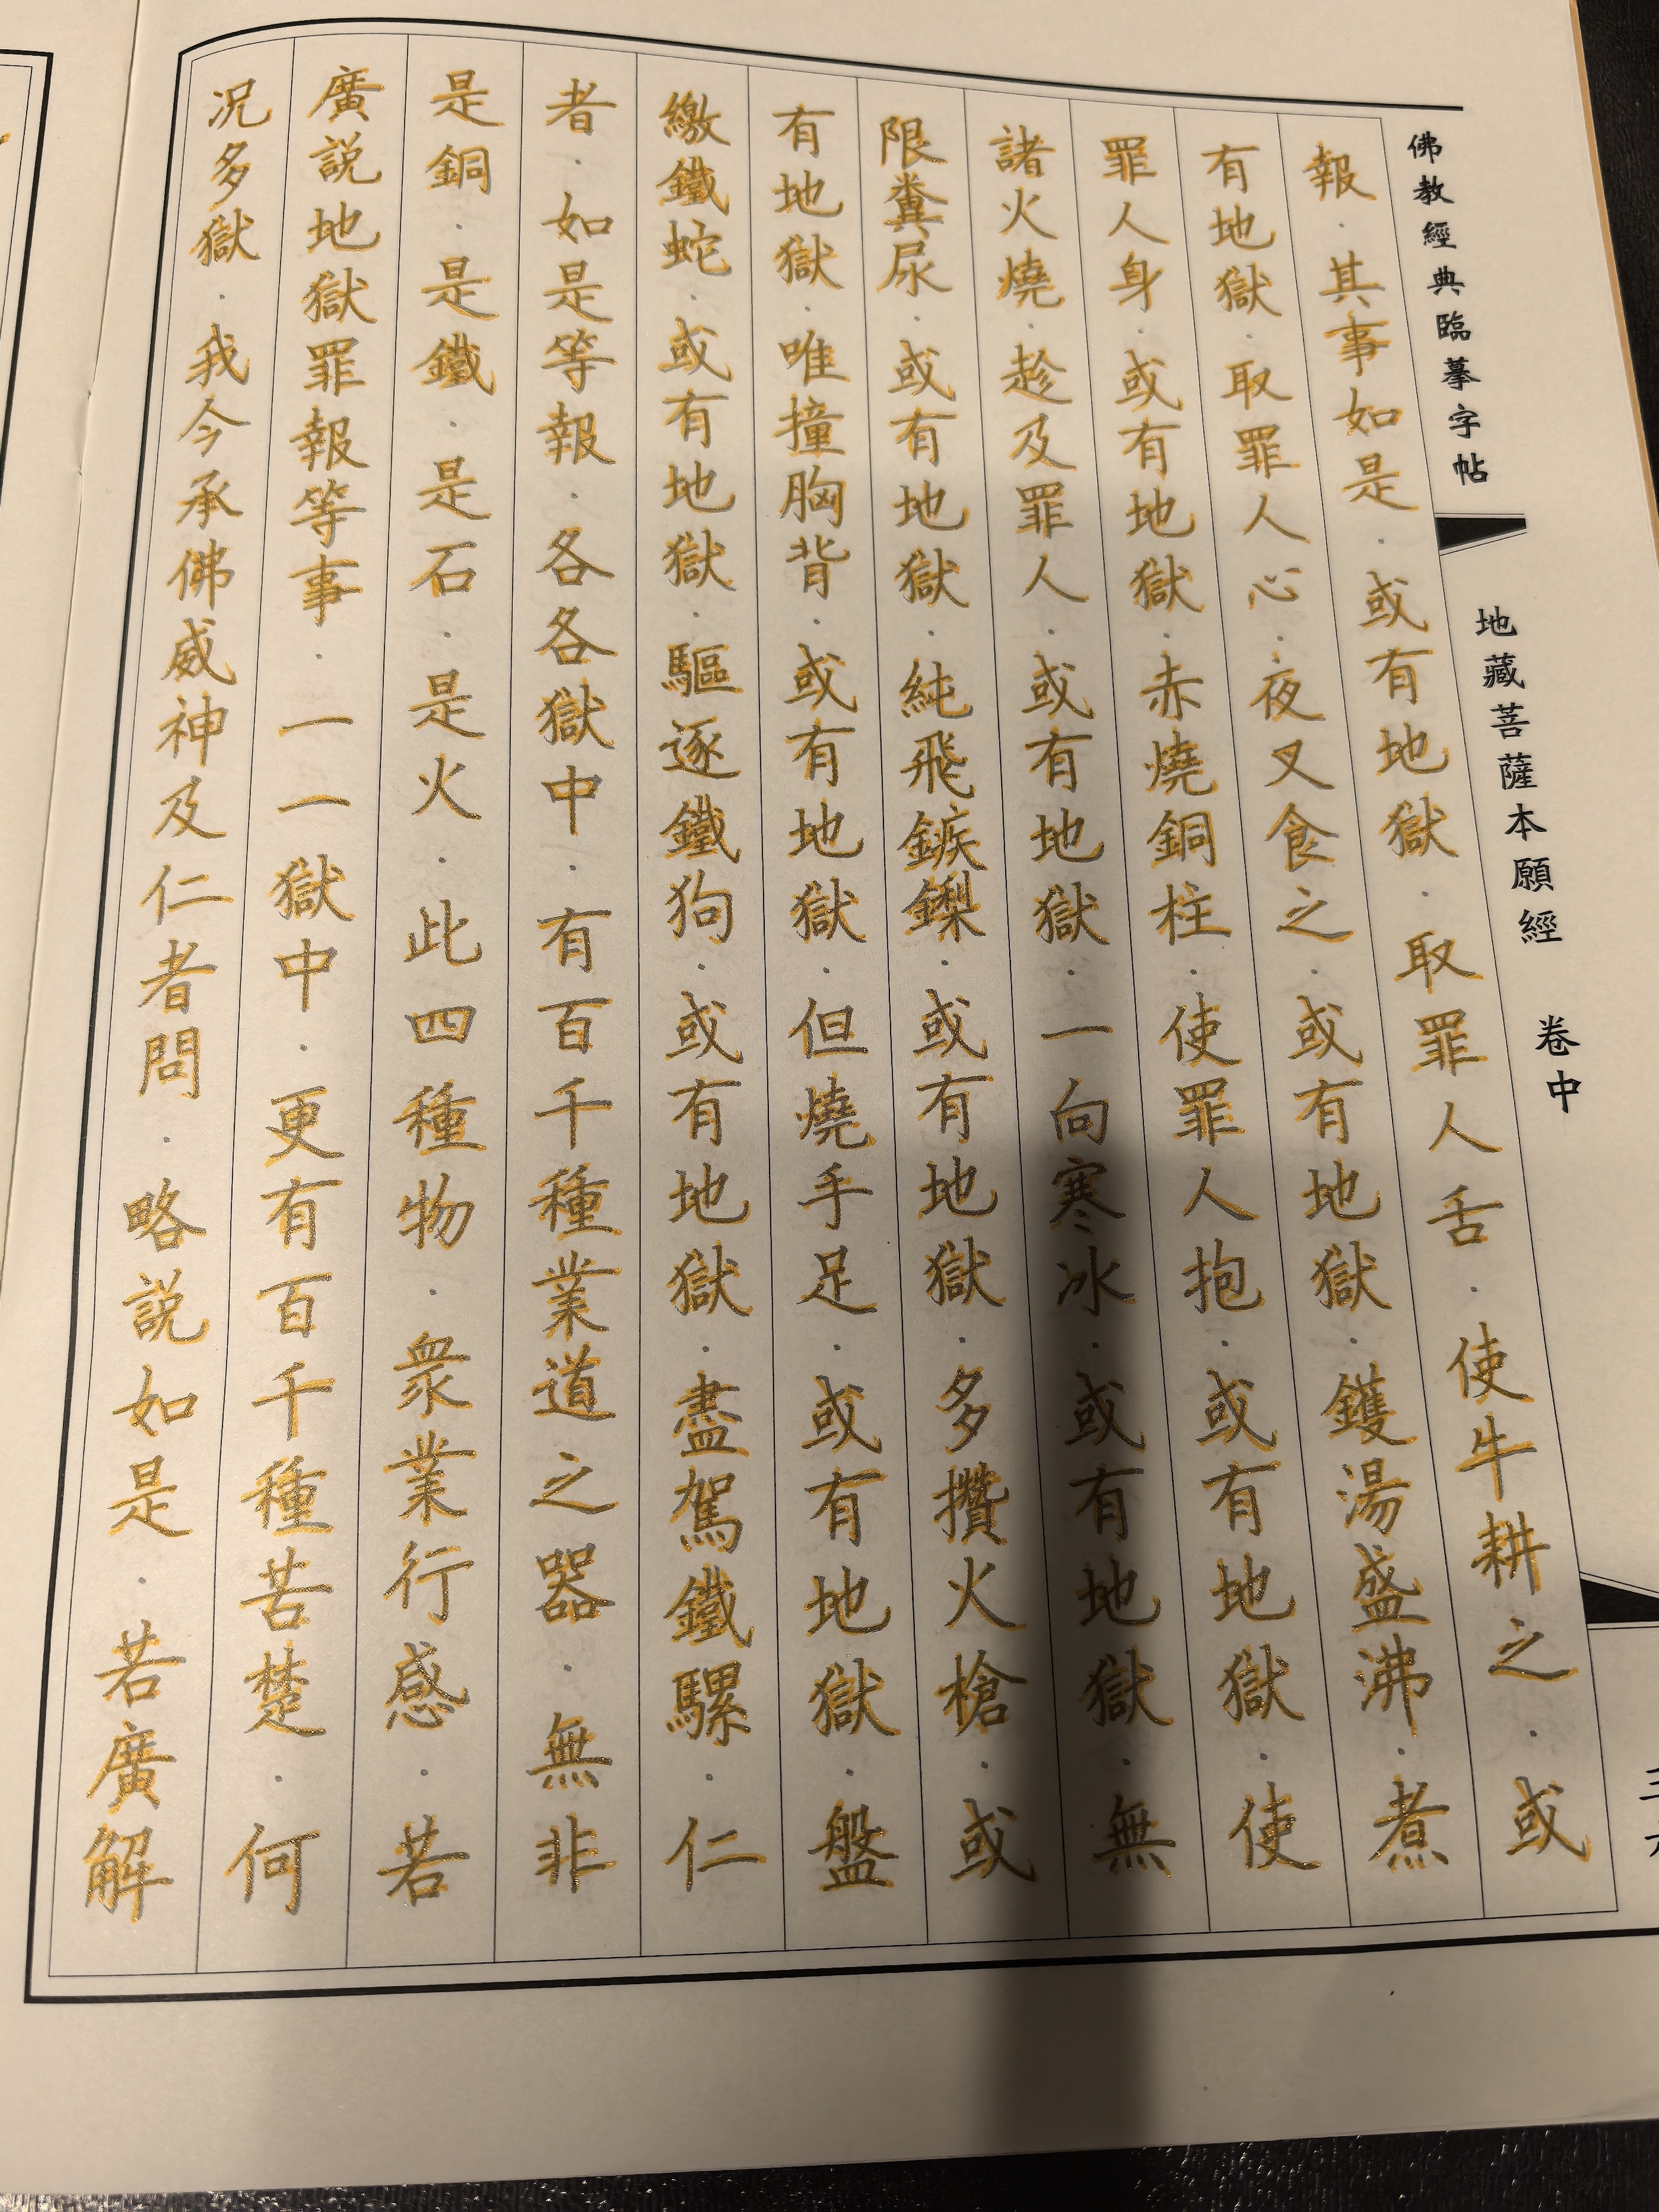 佛教經典臨摹字帖
地藏菩薩本願經 卷中
報．其事如是．或有地獄．取罪人舌．使牛耕之．或
有地獄．取罪人心．夜叉食之．或有地獄．鑊湯盛沸．煮
罪人身．或有地獄．赤燒銅柱．使罪人抱．或有地獄．使
諸火燒．趁及罪人．或有地獄．一向寒冰．或有地獄．無
限糞尿．或有地獄．純飛鏃鑗．或有地獄．多攢火槍．或
有地獄．唯撞胸背．或有地獄．但燒手足．或有地獄．盤
繳鐵蛇．或有地獄．驅逐鐵狗．或有地獄．盡駕鐵騾．仁
者．如是等報．各各獄中．有百千種業道之器．無非
是銅．是鐵．是石．是火．此四種物．衆業行感．若
廣説地獄罪報等事．一一獄中．更有百千種苦楚．何
况多獄．我今承佛威神及仁者問．略説如是．若廣解